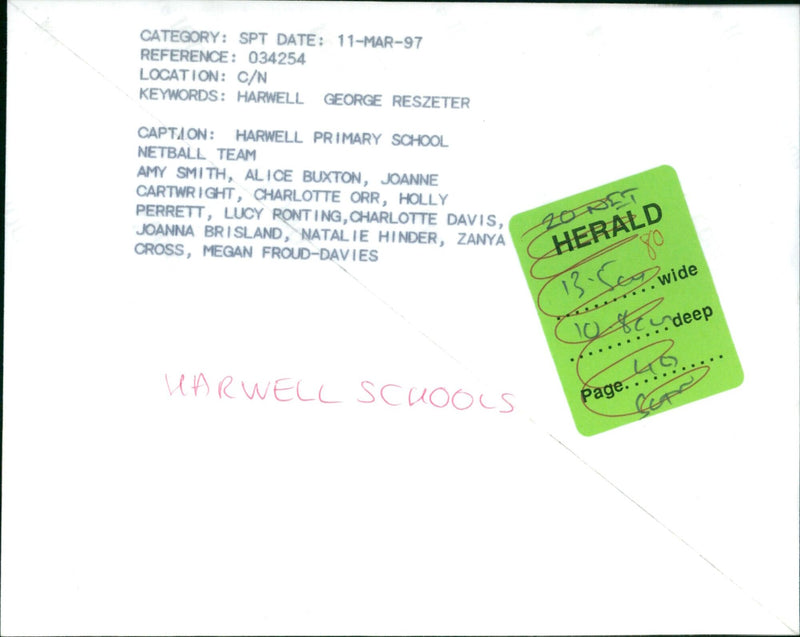 CATEGORY: SPT DATE: 11-MAR-97
REFERENCE: 034254
LOCATION: C/N
KEYWORDS: HARWELL GEORGE RESZETER
CAPTION: HARWELL PRIMARY SCHOOL
NETBALL TEAM
AMY SMITH, ALICE BUXTON, JOANNE
CARTWRIGHT, CHARLOTTE ORR, HOLLY
PERRETT, LUCY PONTING,CHARLOTTE DAVIS,
JOANNA BRISLAND, NATALIE HINDER, ZANYA
CROSS, MEGAN FROUD-DAVIES
20 NET
HERALD
80
13.5cm wide
10.8cm deep
Page 40
HARWELL SCHOOLS